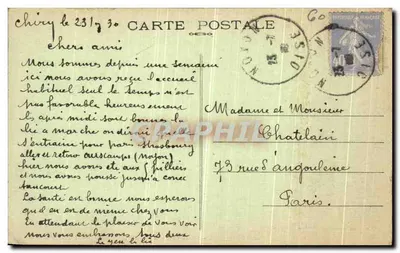 Chiry le 23/7/30
CARTE POSTALE
Chers amis
Nous sommes depuis une semaine
ici nous avons reçu l'accueil
habituel seul le temps n'est
pas favorable heureusement
les après midi sont bonnes la
marche on dirait
s'entraine pour paris Strasbourg
aller et retour (Noyon)
hier nous avons été aux
et nous avons pousse jusqu'a
La santé est bonne nous esperons
qu'il en est de meme chez vous
En attendant le plaisir de vous voir
nous vous embrassons tous deux
Madame et Monsieur
Chatelain
73 rue d'angouleme
Paris.
NOYON
OISE
23 -7
30
NOYON
OISE
23 -7